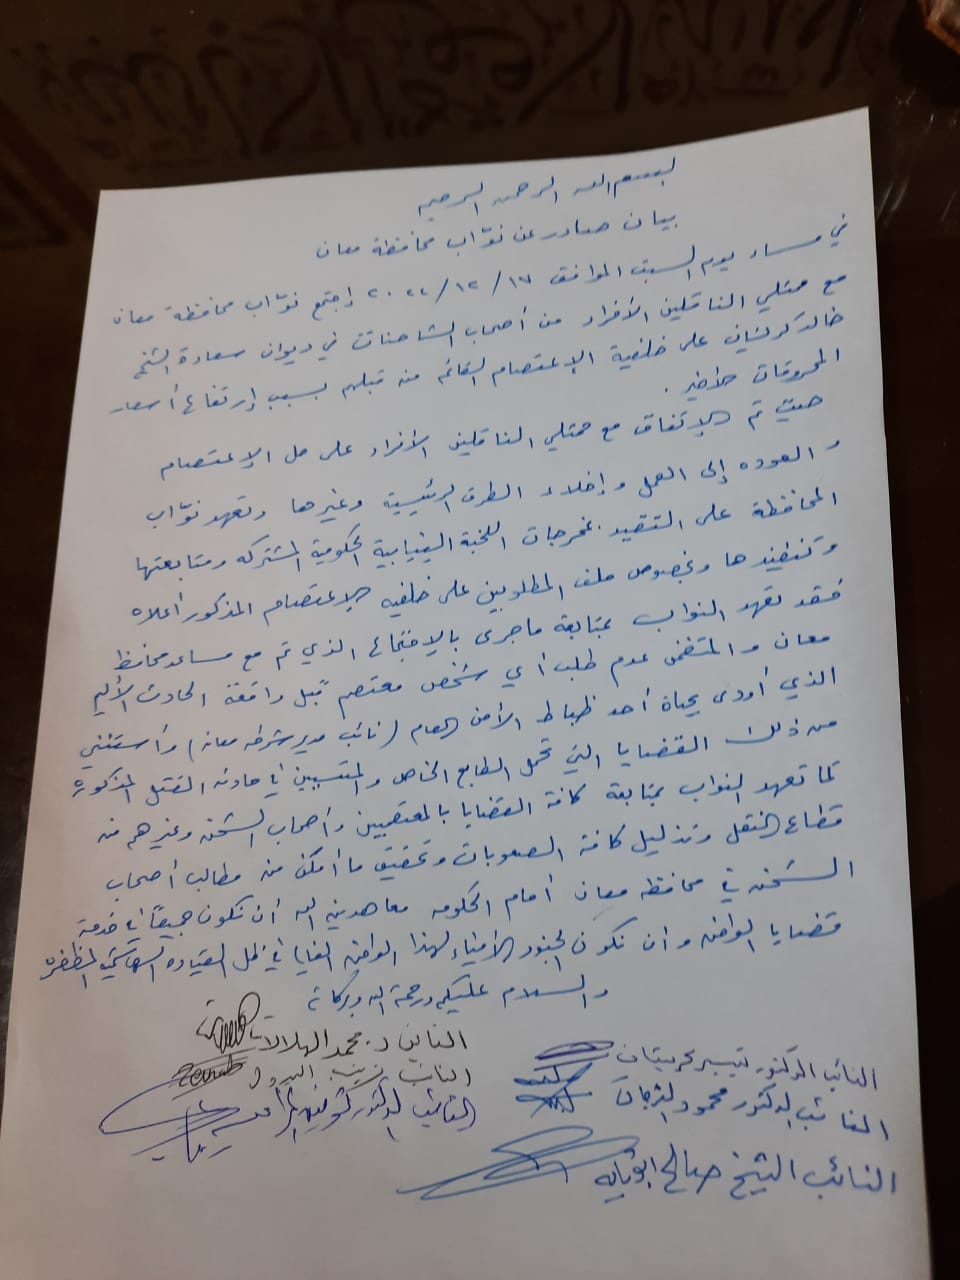 بسم الله الرحمن الرحيم
بيان صادر عن نوّاب محافظة معان
في مساء يوم السبت الموافق ١٧/١٢/٢٠٢٢ إجتمع نوّاب محافظة معان
مع ممثلي الناقلين الأفراد من أصحاب الشاحنات في ديوان سعادة الشيخ
خالد كريشان على خلفية الإعتصام القائم من قبلهم بسبب إرتفاع أسعار
المحروقات الأخير.
حيث تم الإتفاق مع ممثلي الناقلين الأفراد على حل الإعتصام
و العوده إلى العمل وإخلاء الطرق الرئيسية وغيرها وتعهد نوّاب
المحافظة على التقيد بمخرجات اللجنة النيابية الحكومية المشتركه ومتابعتها
وتنفيذها وبخصوص ملف المطلوبين على خلفيه الإعتصام المذكور أعلاه
فقد تعهد النواب بمتابعة ماجرى بالإجتماع الذي تم مع مساعد محافظ
معان والمتضمن عدم طلب أي شخص معتصم قبل واقعة الحادث الأليم
الذي أودى بحياة أحد ظباط الأمن العام (نائب مدير شرطه معان) وأستثني
من ذلك القضايا التي تحمل الطابع الخاص والمتسببين في حادثه القتل المذكورة
كما تعهد النواب بمتابعة كافة القضايا بالمعتصمين وأصحاب الشحن وغيرهم من
قطاع النقل وتذليل كافة الصعوبات وتحقيق ما أمكن من مطالب أصحاب
الشحن في محافظه معان أمام الحكومه معاهدين الله أن نكون جميعاً في خدمة
قضايا الوطن وان نكون الجنود الأمناء لهذا الوطن الغالي في ظل القياده الهاشميه المظفره
والسلام عليكم ورحمة الله وبركاته
النائب د. محمد الهلالات
النائب الدكتور تيسير كريشان
النائب زينب البدول
zeinab
النائب الدكتور محمود
النائب الدكتور
النائب الشيخ صالح ابوتايه